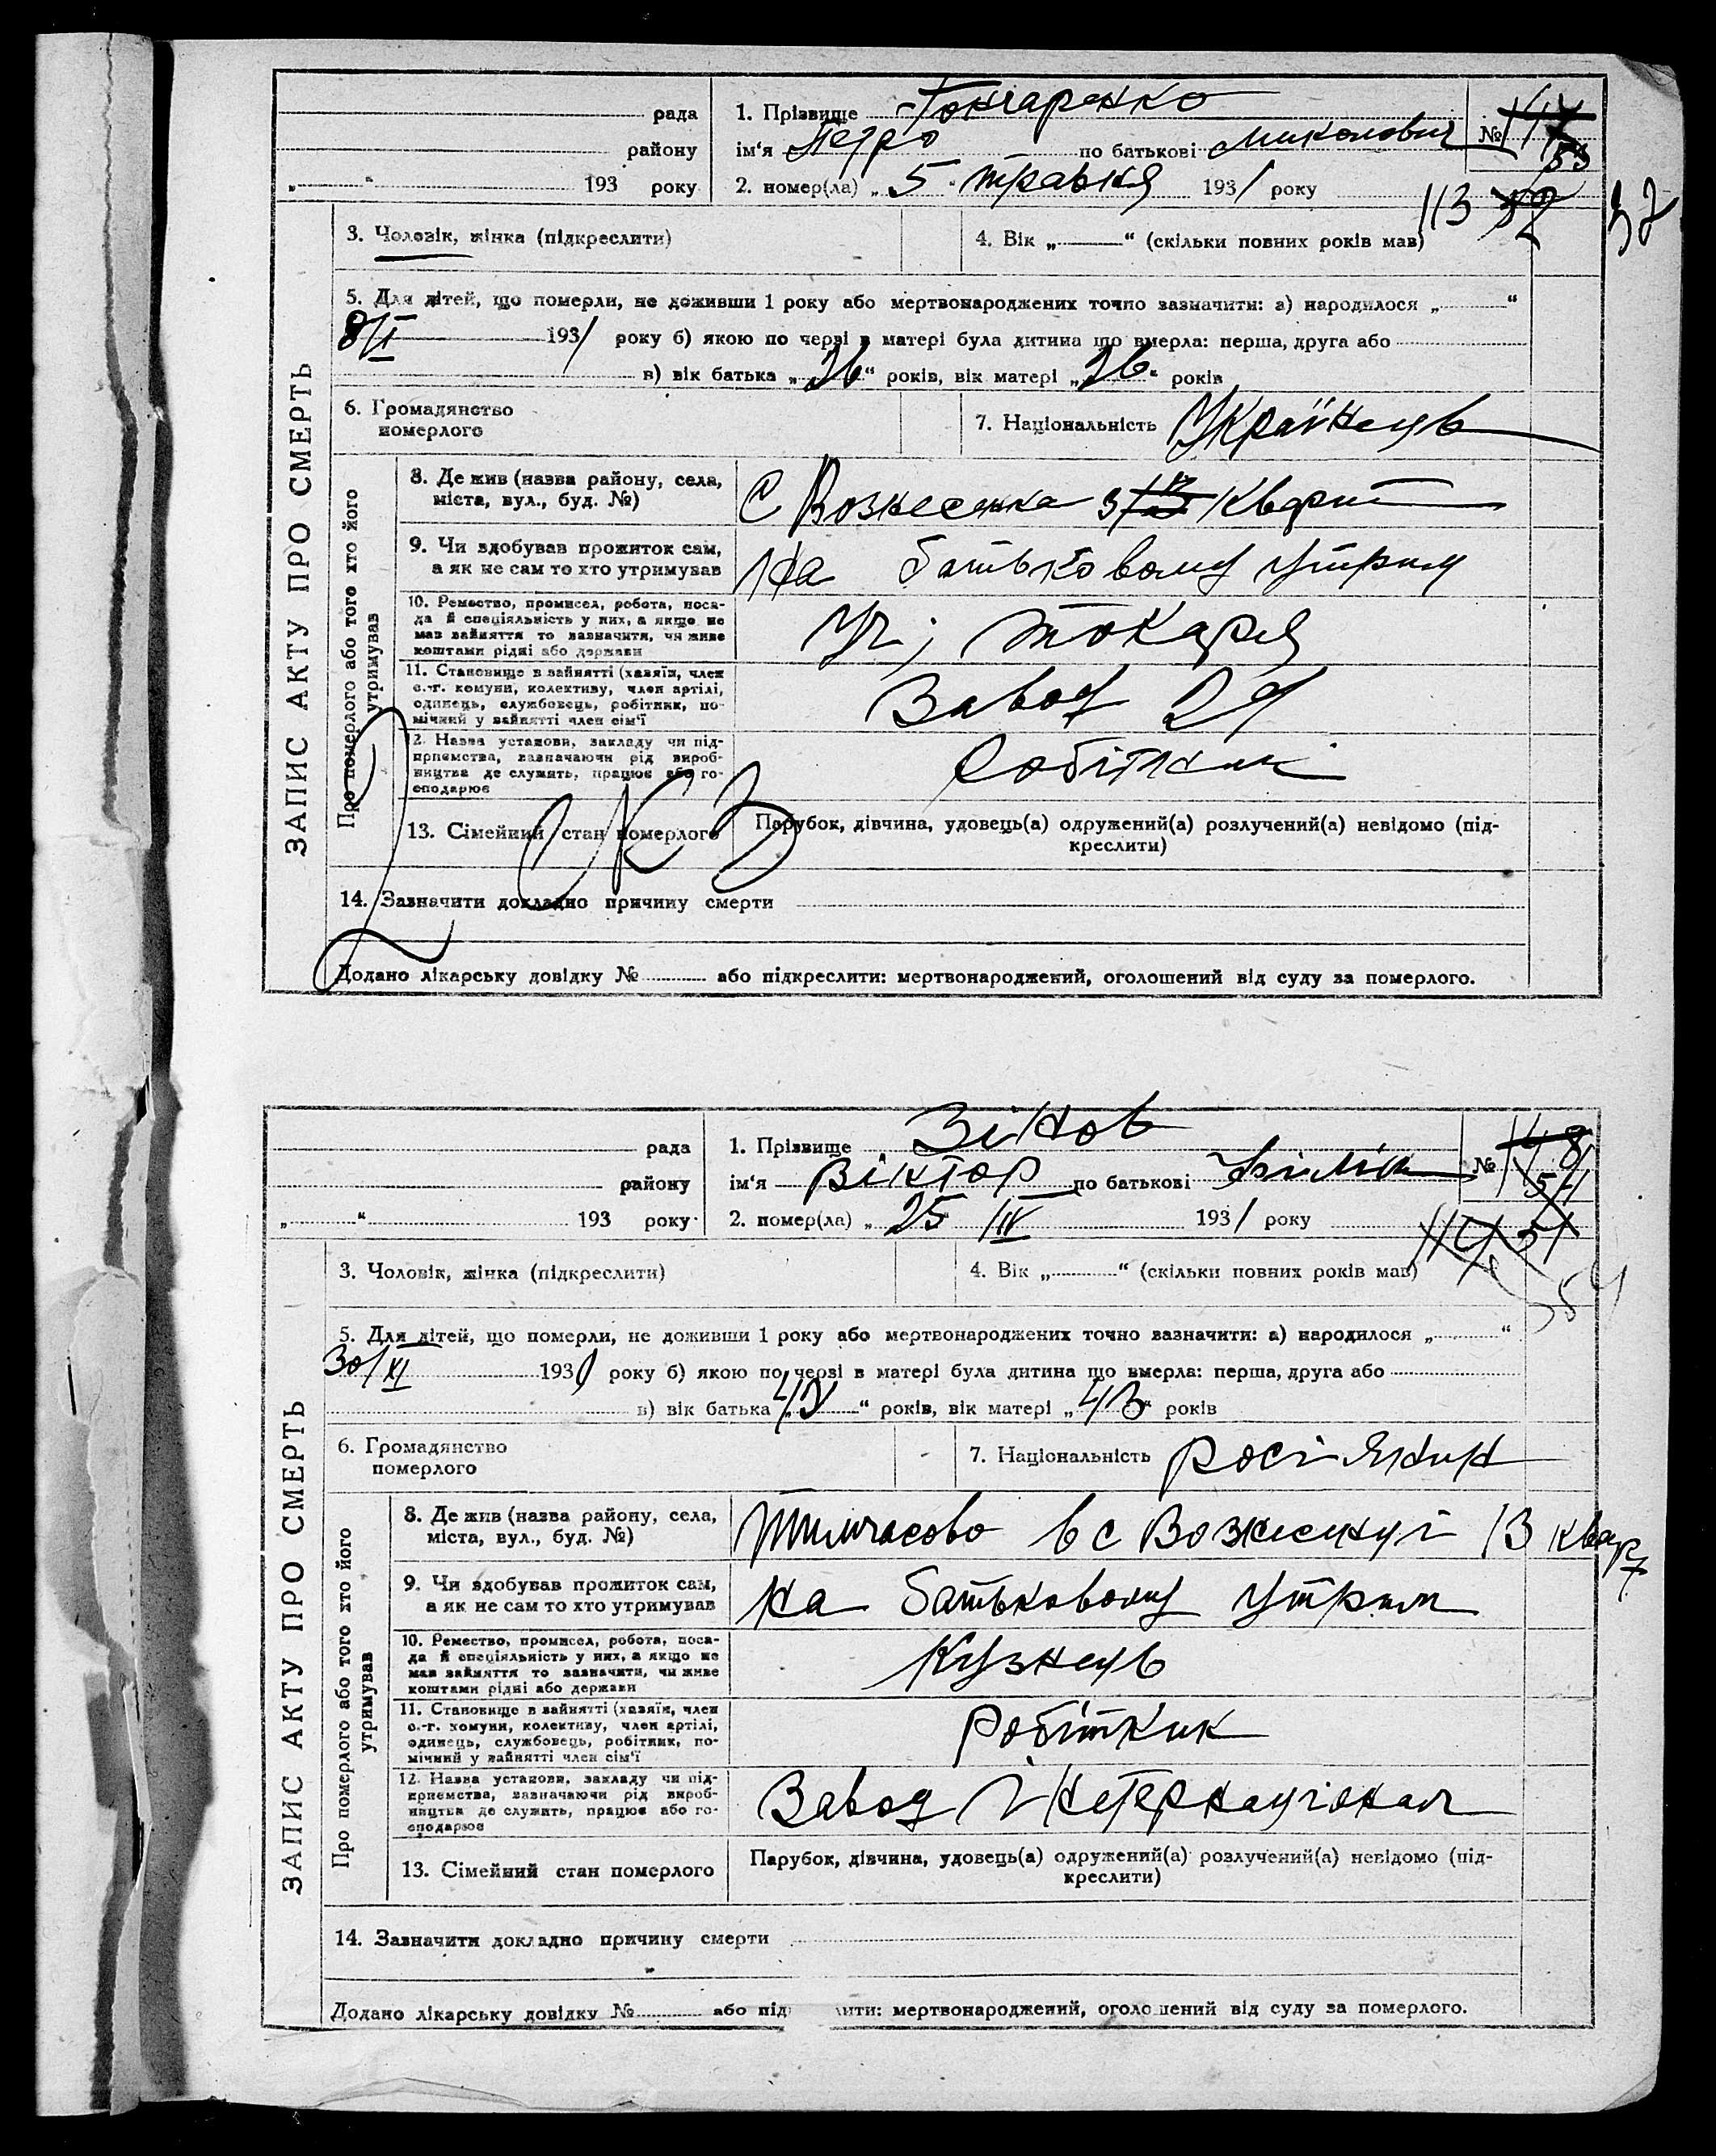 рада
району
„ “ 193 року
1. Прізвище Гончаренко
ім‘я Петро по батькові Миколович
2. помер(ла) „ 5 “ травня 1931 року
№ 147
53
113
37
3. Чоловік, жінка (підкреслити)
4. Вік „ “ (скільки повних років мав)
5. Для дітей, що померли, не доживши 1 року або мертвонароджених точно зазначити: а) народилося „ “
8/II 1931 року б) якою по черзі в матері була дитина що вмерла: перша, друга або
в) вік батька „ 26 “ років, вік матері „ 26 “ років
6. Громадянство
померлого
7. Національність Українець
ЗАПИС АКТУ ПРО СМЕРТЬ
Про померлого або того хто його
утримував
8. Де жив (назва району, села,
міста, вул., буд. №)
С Вознесенка 3 Кварт
9. Чи здобував прожиток сам,
а як не сам то хто утримував
На батьковому утрим
10. Ремество, промисел, робота, поса-
да й спеціяльність у них, а якщо не
мав зайняття то зазначити, чи живе
коштами рідні або держави
Уч, токаря
11. Становище в зайнятті (хазяїн, член
с.-г. комуни, колективу, член артілі,
одинець, службовець, робітник, по-
мічний у зайнятті член сім‘ї
Завод 29
12. Назва установи, закладу чи під-
приємства, зазначаючи рід вироб-
ництва де служить, працює або го-
сподарює
Робітник
13. Сімейний стан померлого
Парубок, дівчина, удовець(а) одружений(а) розлучений(а) невідомо (під-
креслити)
14. Зазначити докладно причину смерти
Додано лікарську довідку № або підкреслити: мертвонароджений, оголошений від суду за померлого.
рада
району
„ “ 193 року
1. Прізвище Зінов
ім‘я Віктор по батькові
2. помер(ла) „ 25 IV 1931 року
№ 148
54
114 51
54
3. Чоловік, жінка (підкреслити)
4. Вік „ “ (скільки повних років мав)
5. Для дітей, що померли, не доживши 1 року або мертвонароджених точно зазначити: а) народилося „ “
30/XI 1930 року б) якою по черзі в матері була дитина що вмерла: перша, друга або
в) вік батька „ “ років, вік матері „ 43 “ років
6. Громадянство
померлого
7. Національність Росіянин
ЗАПИС АКТУ ПРО СМЕРТЬ
Про померлого або того хто його
утримував
8. Де жив (назва району, села,
міста, вул., буд. №)
Тимчасово в с Вознесенці 13 кварт
9. Чи здобував прожиток сам,
а як не сам то хто утримував
На батьковому утрим
10. Ремество, промисел, робота, поса-
да й спеціяльність у них, а якщо не
мав зайняття то зазначити, чи живе
коштами рідні або держави
Кузнець
11. Становище в зайнятті (хазяїн, член
с.-г. комуни, колективу, член артілі,
одинець, службовець, робітник, по-
мічний у зайнятті член сім‘ї
Робітник
12. Назва установи, закладу чи під-
приємства, зазначаючи рід вироб-
ництва де служить, працює або го-
сподарює
Завод Інтернаціонал
13. Сімейний стан померлого
Парубок, дівчина, удовець(а) одружений(а) розлучений(а) невідомо (під-
креслити)
14. Зазначити докладно причину смерти
Додано лікарську довідку № або під ити: мертвонароджений, оголошений від суду за померлого.